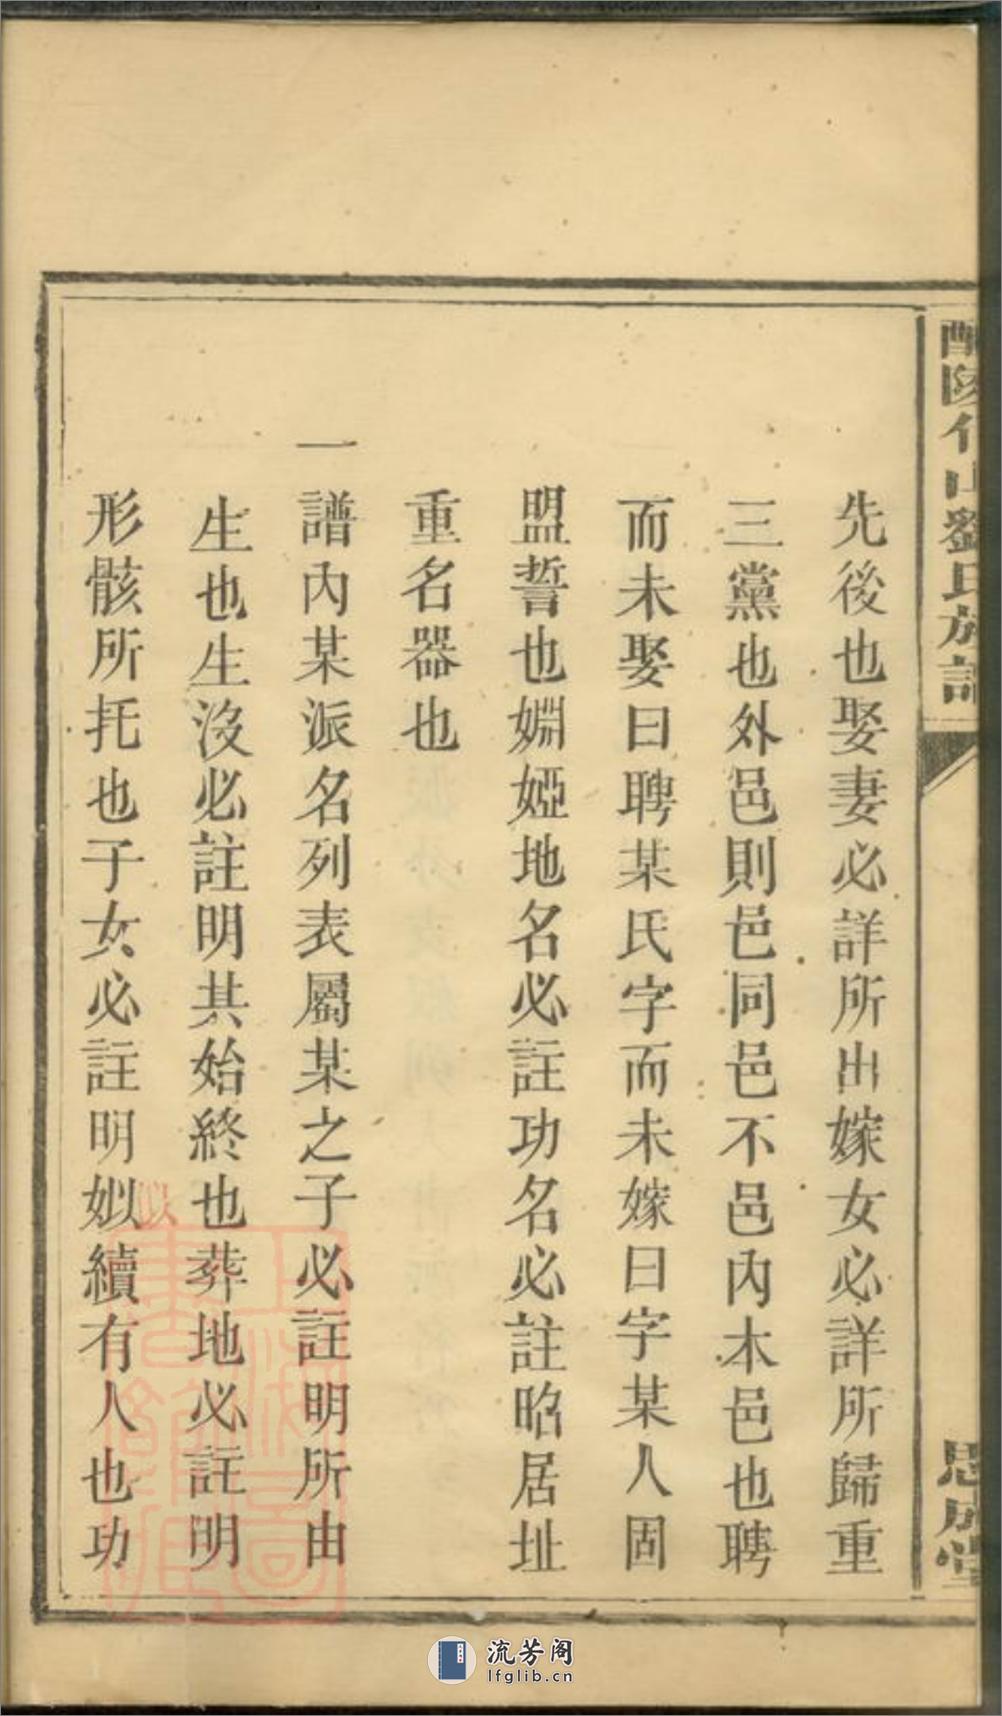 醴陵什山劉氏族譜
思成堂
先後也娶妻必詳所出嫁女必詳所歸重
三黨也外邑則邑同邑不邑內本邑也聘
而未娶曰聘某氏字而未嫁曰字某人固
盟誓也婣婭地名必註功名必註昭居址
重名器也
一譜內某派名列表屬某之子必註明所由
生也生沒必註明其始終也葬地必註明
形骸所托也子女必註明姒續有人也功
似
上海圖書館藏
流芳阁
lfglib.cn